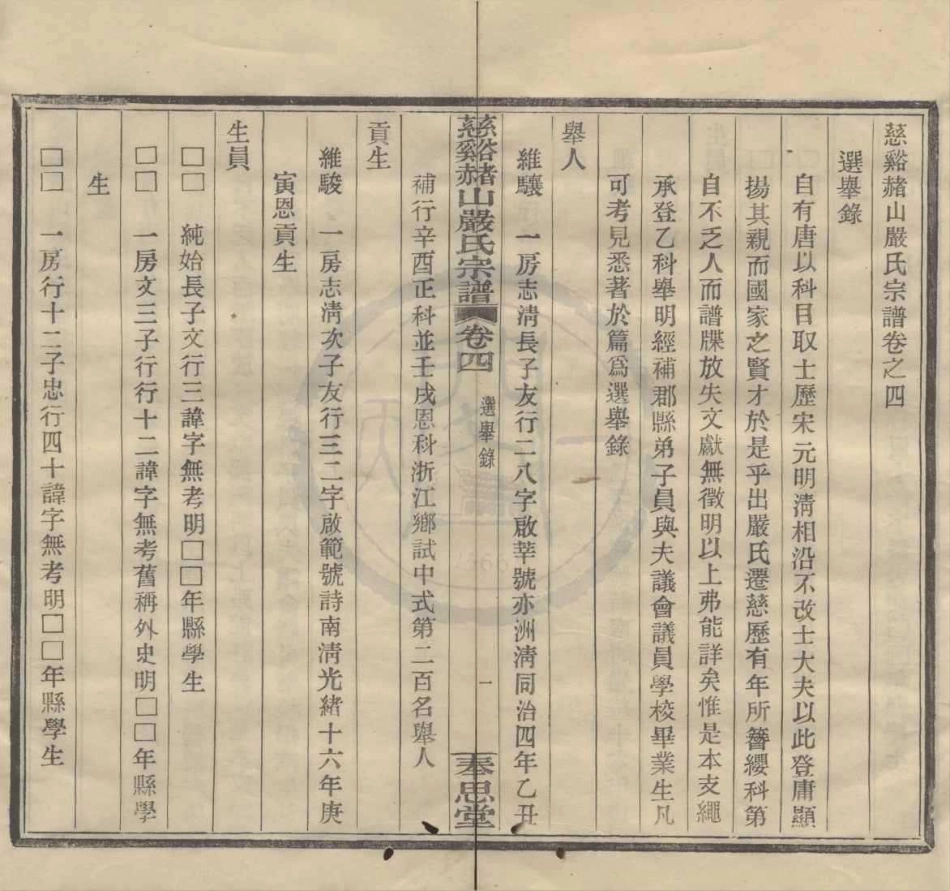 慈谿赭山嚴氏宗譜卷之四
選舉錄
自有唐以科目取士歷宋元明清相沿不改士大夫以此登庸顯
揚其親而國家之賢才於是乎出嚴氏遷慈歷有年所簪纓科第
自不乏人而譜牒放失文獻無徵明以上弗能詳矣惟是本支繩
承登乙科舉明經補郡縣弟子員與夫議會議員學校畢業生凡
可考見悉著於篇爲選舉錄
舉人
維驤 一房志淸長子友行二八字啟莘號亦洲淸同治四年乙丑
補行辛酉正科並壬戌恩科浙江鄉試中式第二百名舉人
慈谿赭山嚴氏宗譜 卷四 選舉錄 一 奉思堂
貢生
維駿 一房志淸次子友行三二字啟範號詩南淸光緒十六年庚
寅恩貢生
生員
□□ 純始長子文行三諱字無考明□□年縣學生
□□ 一房文三子行行十二諱字無考舊稱外史明□□年縣學
生
□□ 一房行十二子忠行四十諱字無考明□□年縣學生